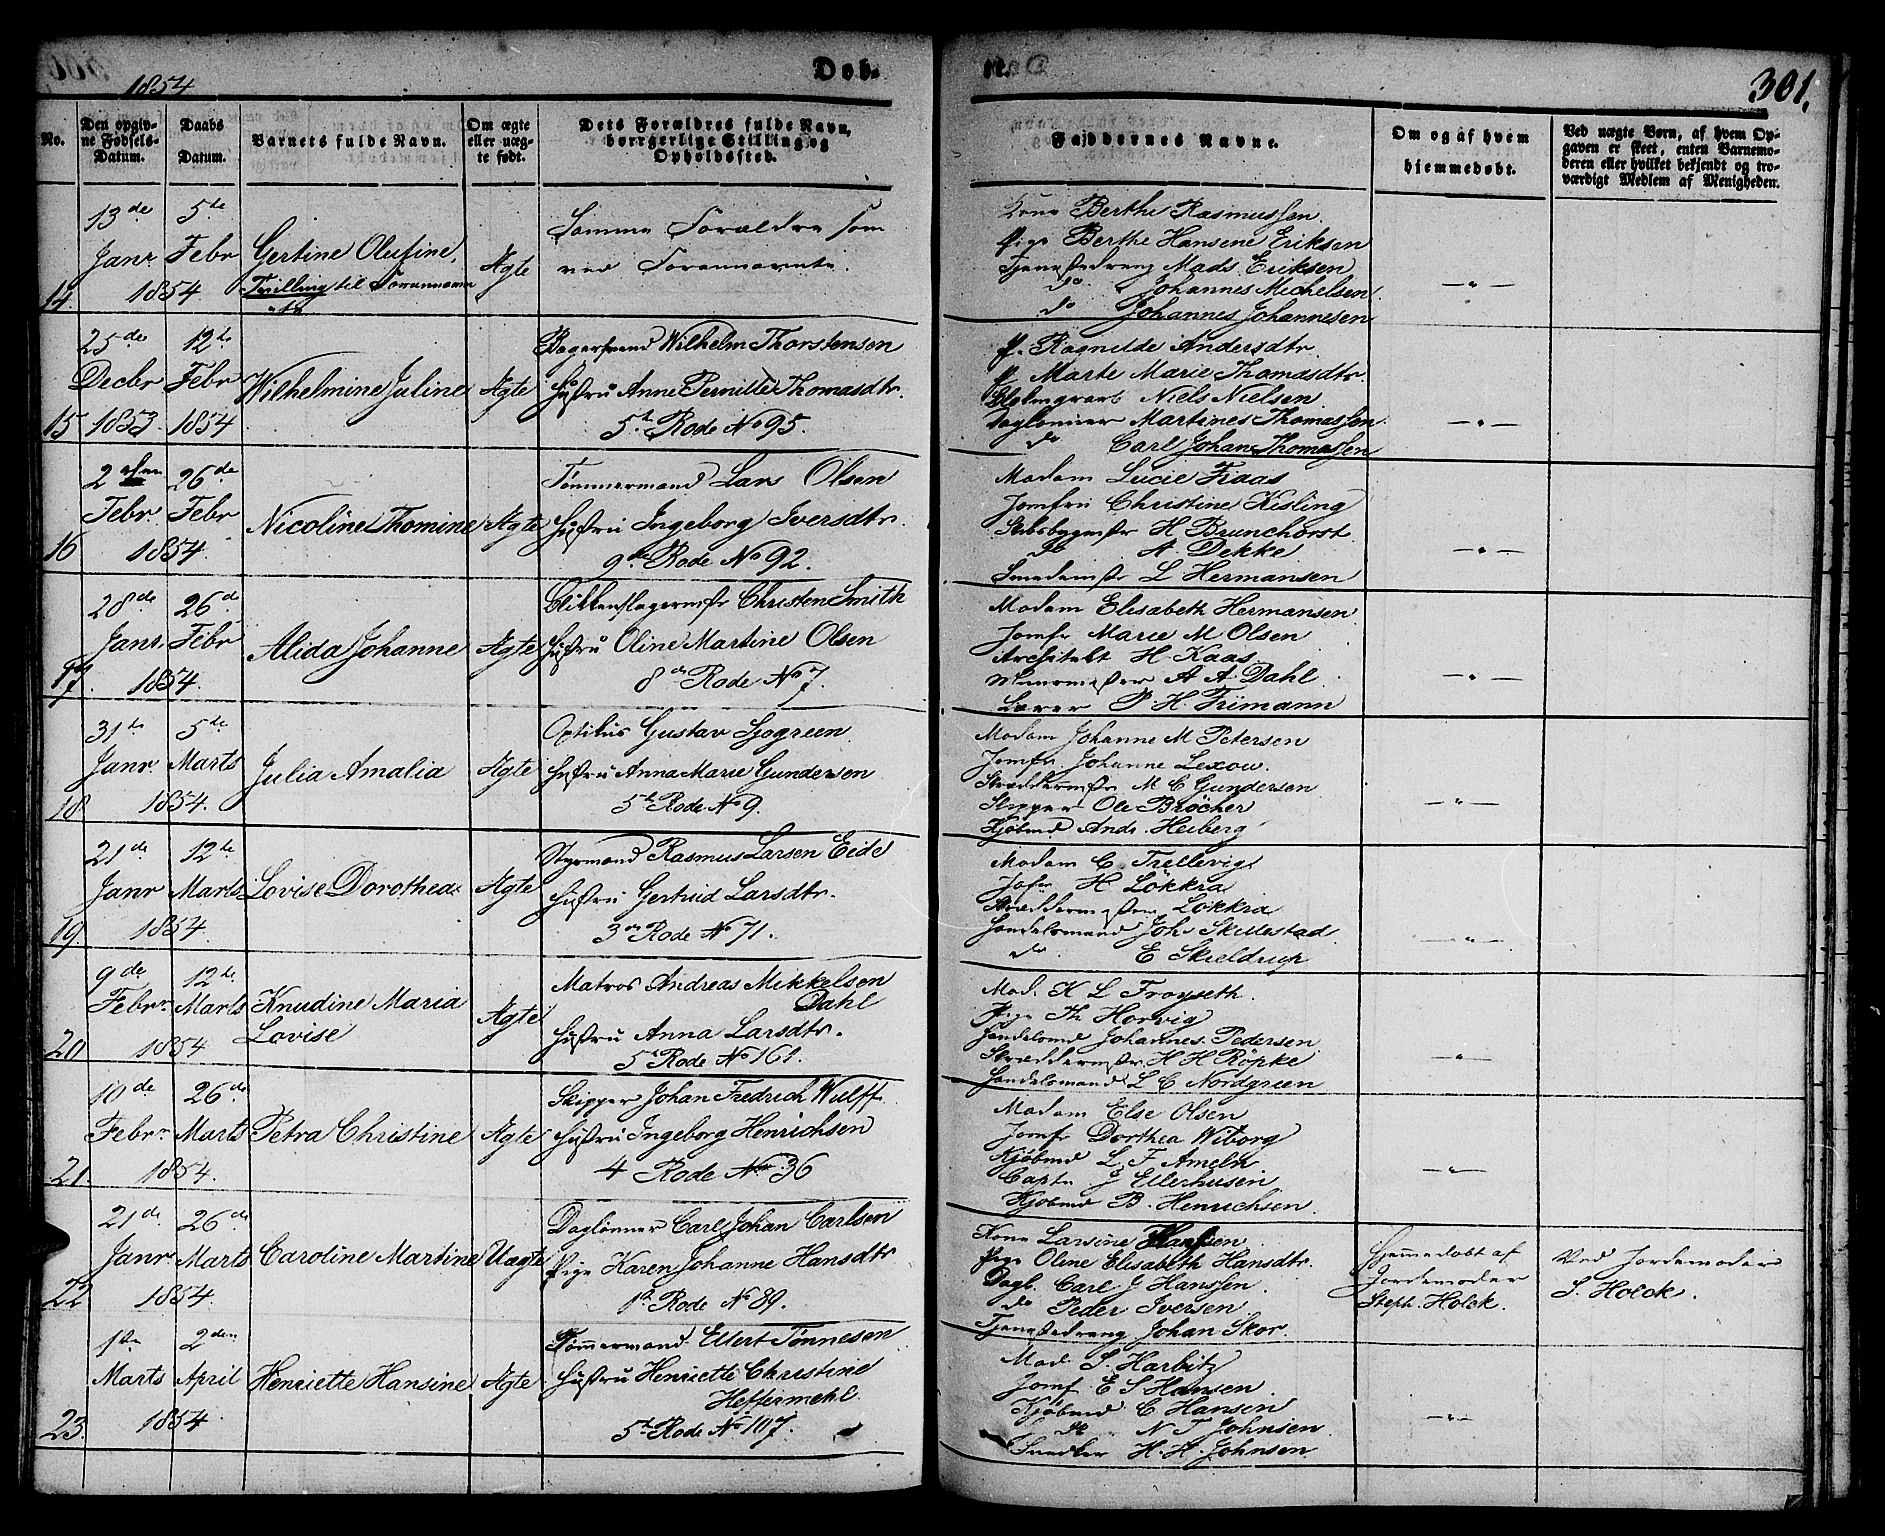 1854
Døb-
te.
301.
No.
Den opgiv-
ne Fødsels-
Datum.
Daabs
Datum.
Barnets fulde Navn.
Om ægte
eller uæg-
te født.
Dets Forældres fulde Navn,
borgerlige Stilling og
Opholdssted.
Faddernes Navne.
Om og af hvem
hjemmedøbt.
Ved uægte Børn, af hvem Op-
gaven er skeet, enten Barnemo-
deren eller hvilket bekjendt og tro-
værdigt Medlem af Menigheden.
14
13de
Janr
5te
Febr
1854.
Gertine Olufine,
Tvilling til Forannævn
-te
Ægte
Samme Forældre som
ved Forannævnte.
Kone Berthe Rasmussen.
Pige Berthe Hansene Eriksen
Tjenestedreng Mads Eriksen
do Johannes Michelsen
do Johannes Johannesen
15
25de
Decbr
1853.
12te
Febr
1854
Wilhelmine Juline
Ægte
Bagersvend Wilhelm Thorstensen
Hustru Anne Pernille Thomasdtr.
5te Rode No 95.
P. Ragnilde Andersdtr.
P Marte Marie Thomasdtr.
Niels Nielsen
Daglønner Martines Thomassen
do Carl Johan Thomassen
16
2den
Febr.
26de
Febr
1854.
Nicoline Thomine
Ægte
Tømmermand Lars Olsen
Hustru Ingeborg Iversdtr.
9de Rode No 92.
Madam Lucie Faas
Jomfru Christine Kisling
Skibsbygmstr H Brunchorst
do A. Dekke
Smedemstr L Hermansen
17.
28de
Janr.
26de
Febr
1854.
Alida Johanne
Ægte
Blikkenslagermstr Christen Smith
Hustru Oline Martine Olsen
8de Rode No 7.
Madam Elisabeth Hermansen.
Jomfr Marie M Olsen
Architekt H Kaas
Muurmester A A Dahl.
Lærer P. H. Friimann
18
31te
Janr.
5te
Marts
1854.
Julia Amalia
Ægte
Optikus Gustav Sjøgreen.
Hustru Anna Marie Gundersen
5te Rode No 9.
Madam Johanne M Petersen
Jomfr Johanne Lexow.
Skræddermstr M C Gundersen
Skipper Ole Brøcher
Kjøbmd Andr. Heiberg
19.
21de
Janr
12te
Marts
1854.
Lovise Dorothea
Ægte
Styrmand Rasmus Larsen Eide
Hustru Gertrud Larsdtr.
3die Rode No 71.
Madam C. Trellevig
Jofr H Løkkra
Skræddermester Løkkra
Handelsmand Joh. Skulestad
do E Skieldrup
20
9de
Febr.
12te
Marts
1854
Knudine Maria
Lovise
Ægte
Matros Andreas Mikkelsen
Dahl
Hustru Anna Larsdtr.
5te Rode No 161.
Mad. K L Frøyseth.
Pige Th Horvig
Handelsmd Johannes Pedersen
Skræddermstr H H Röpke
Handelsmand L C Nordgreen
21.
10de
Febr.
26de
Marts
1854.
Petra Christine
Ægte
Skipper Johan Fredrich Wulff.
Hustru Ingeborg Henrichsen
4 Rode No 36
Madam Else Olsen
Jomfr Dorthea Wiborg
Kjøbmd L. F Ameln
Captn J Ellerhusen
Kjøbmd B. Henrichsen.
22
21de
Janr
26de
Marts
1854.
Caroline Martine
Uægte
Daglønner Carl Johan Carlsen
Pige Karen Johanne Hansdtr
1ste Rode No 89.
Kone Larsine Hansen
Pige Oline Elisabeth Hansdtr.
Dagl. Carl J Hanssen
do Peder Iversen
Tjenestedreng Johan Skor.
Hjemmedøbt af
Jordemoder
Steph. Holck.
Ved Jordemoder
S. Holck.
23.
1ste
Marts
2den
April
1854
Henriette Hansine
Ægte
Tømmermand Ellert Tønnesen
Hustru Henriette Christine
Heftermehl.
5te Rode No 107.
Mad S. Harbitz
Jomf E S Hansen.
Kjøbmd C Hansen
do N T Johnsen
Snedker H. H. Johnsen